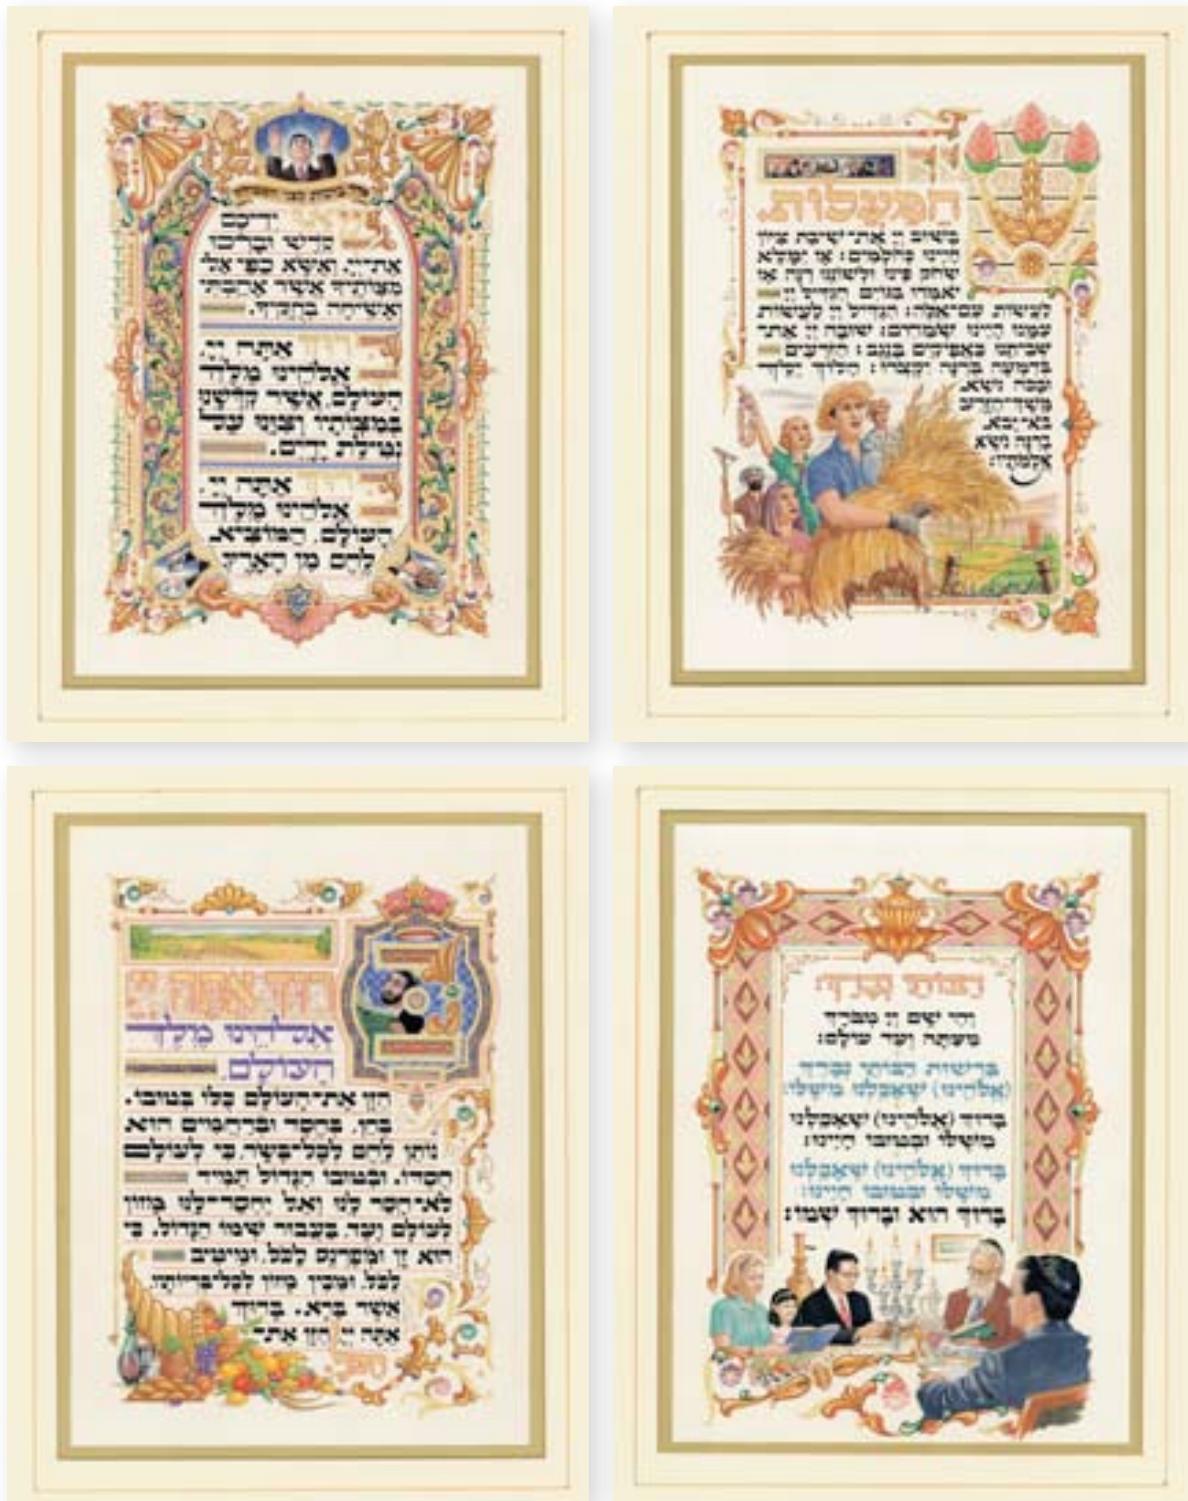 ידיכם
קדש וברכו
את־יי. ואשא כפי אל־
מצותיך אשר אהבתי
ואשיחה בחקיך.
אתה יי.
אלהינו מלך
העולם. אשר קדשנו
במצותיו וצונו על
נטילת ידים.
אתה יי.
אלהינו מלך
העולם. המוציא
לחם מן הארץ
המעלות.
בשוב יי את־שיבת ציון
היינו כחלמים: אז ימלא
שחק פינו ולשוננו רנה אז
יאמרו בגוים הגדיל יי
לעשות עם־אלה: הגדיל יי לעשות
עמנו היינו שמחים: שובה יי את־
שביתנו כאפיקים בנגב: הזרעים
בדמעה ברנה יקצרו: הלוך ילך
ובכה נשא
משך־הזרע
בא־יבא
ברנה נשא
אלמתיו:
ברוך אתה יי
אלהינו מלך
העולם.
הזן את־העולם כלו בטובו.
בחן. בחסד וברחמים הוא
נותן לחם לכל־בשר. כי לעולם
חסדו. ובטובו הגדול תמיד
לא־חסר לנו ואל יחסר־לנו מזון
לעולם ועד. בעבור שמו הגדול. כי
הוא זן ומפרנס לכל. ומיטיב
לכל. ומכין מזון לכל־בריותיו
אשר ברא. ברוך
אתה יי הזן את־
הכל
רבותי נברך
יהי שם יי מברך
מעתה ועד עולם:
ברשות רבותי נברך
(אלהינו) שאכלנו משלו:
ברוך (אלהינו) שאכלנו
משלו ובטובו חיינו:
ברוך (אלהינו) שאכלנו
משלו ובטובו חיינו:
ברוך הוא וברוך שמו: